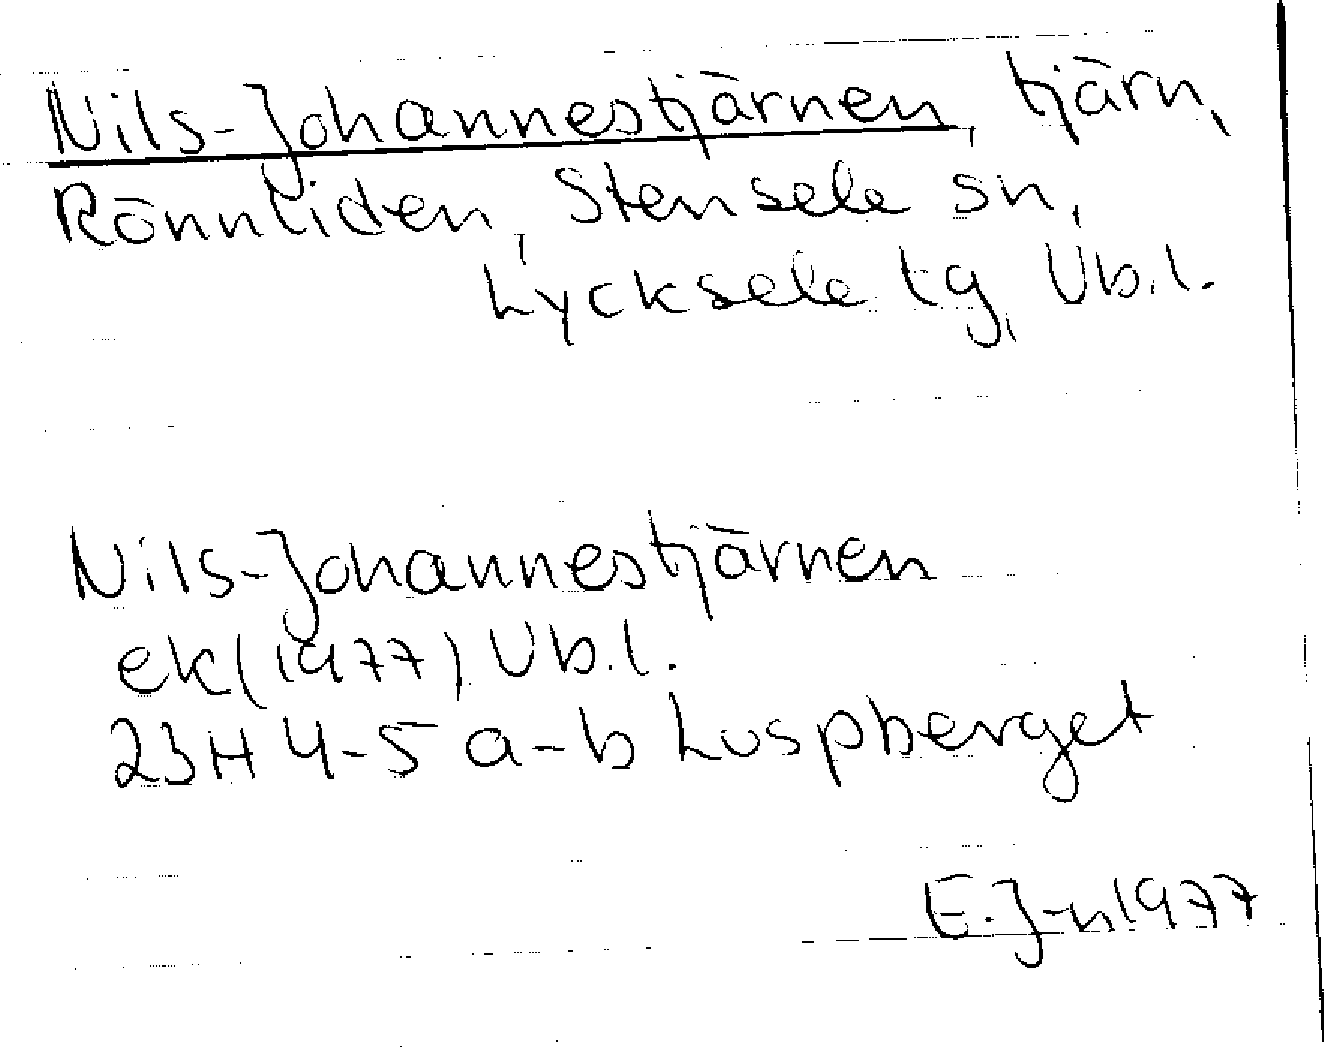 Nils-Johannestjärnen, tjärn,
Rönnliden, Stensele sn,
Lycksele tg, Vb.l.
Nils-Johannestjärnen
ek (1977) Vb.l.
23H 4-5 a-b Luspberget
E. J-n 1977